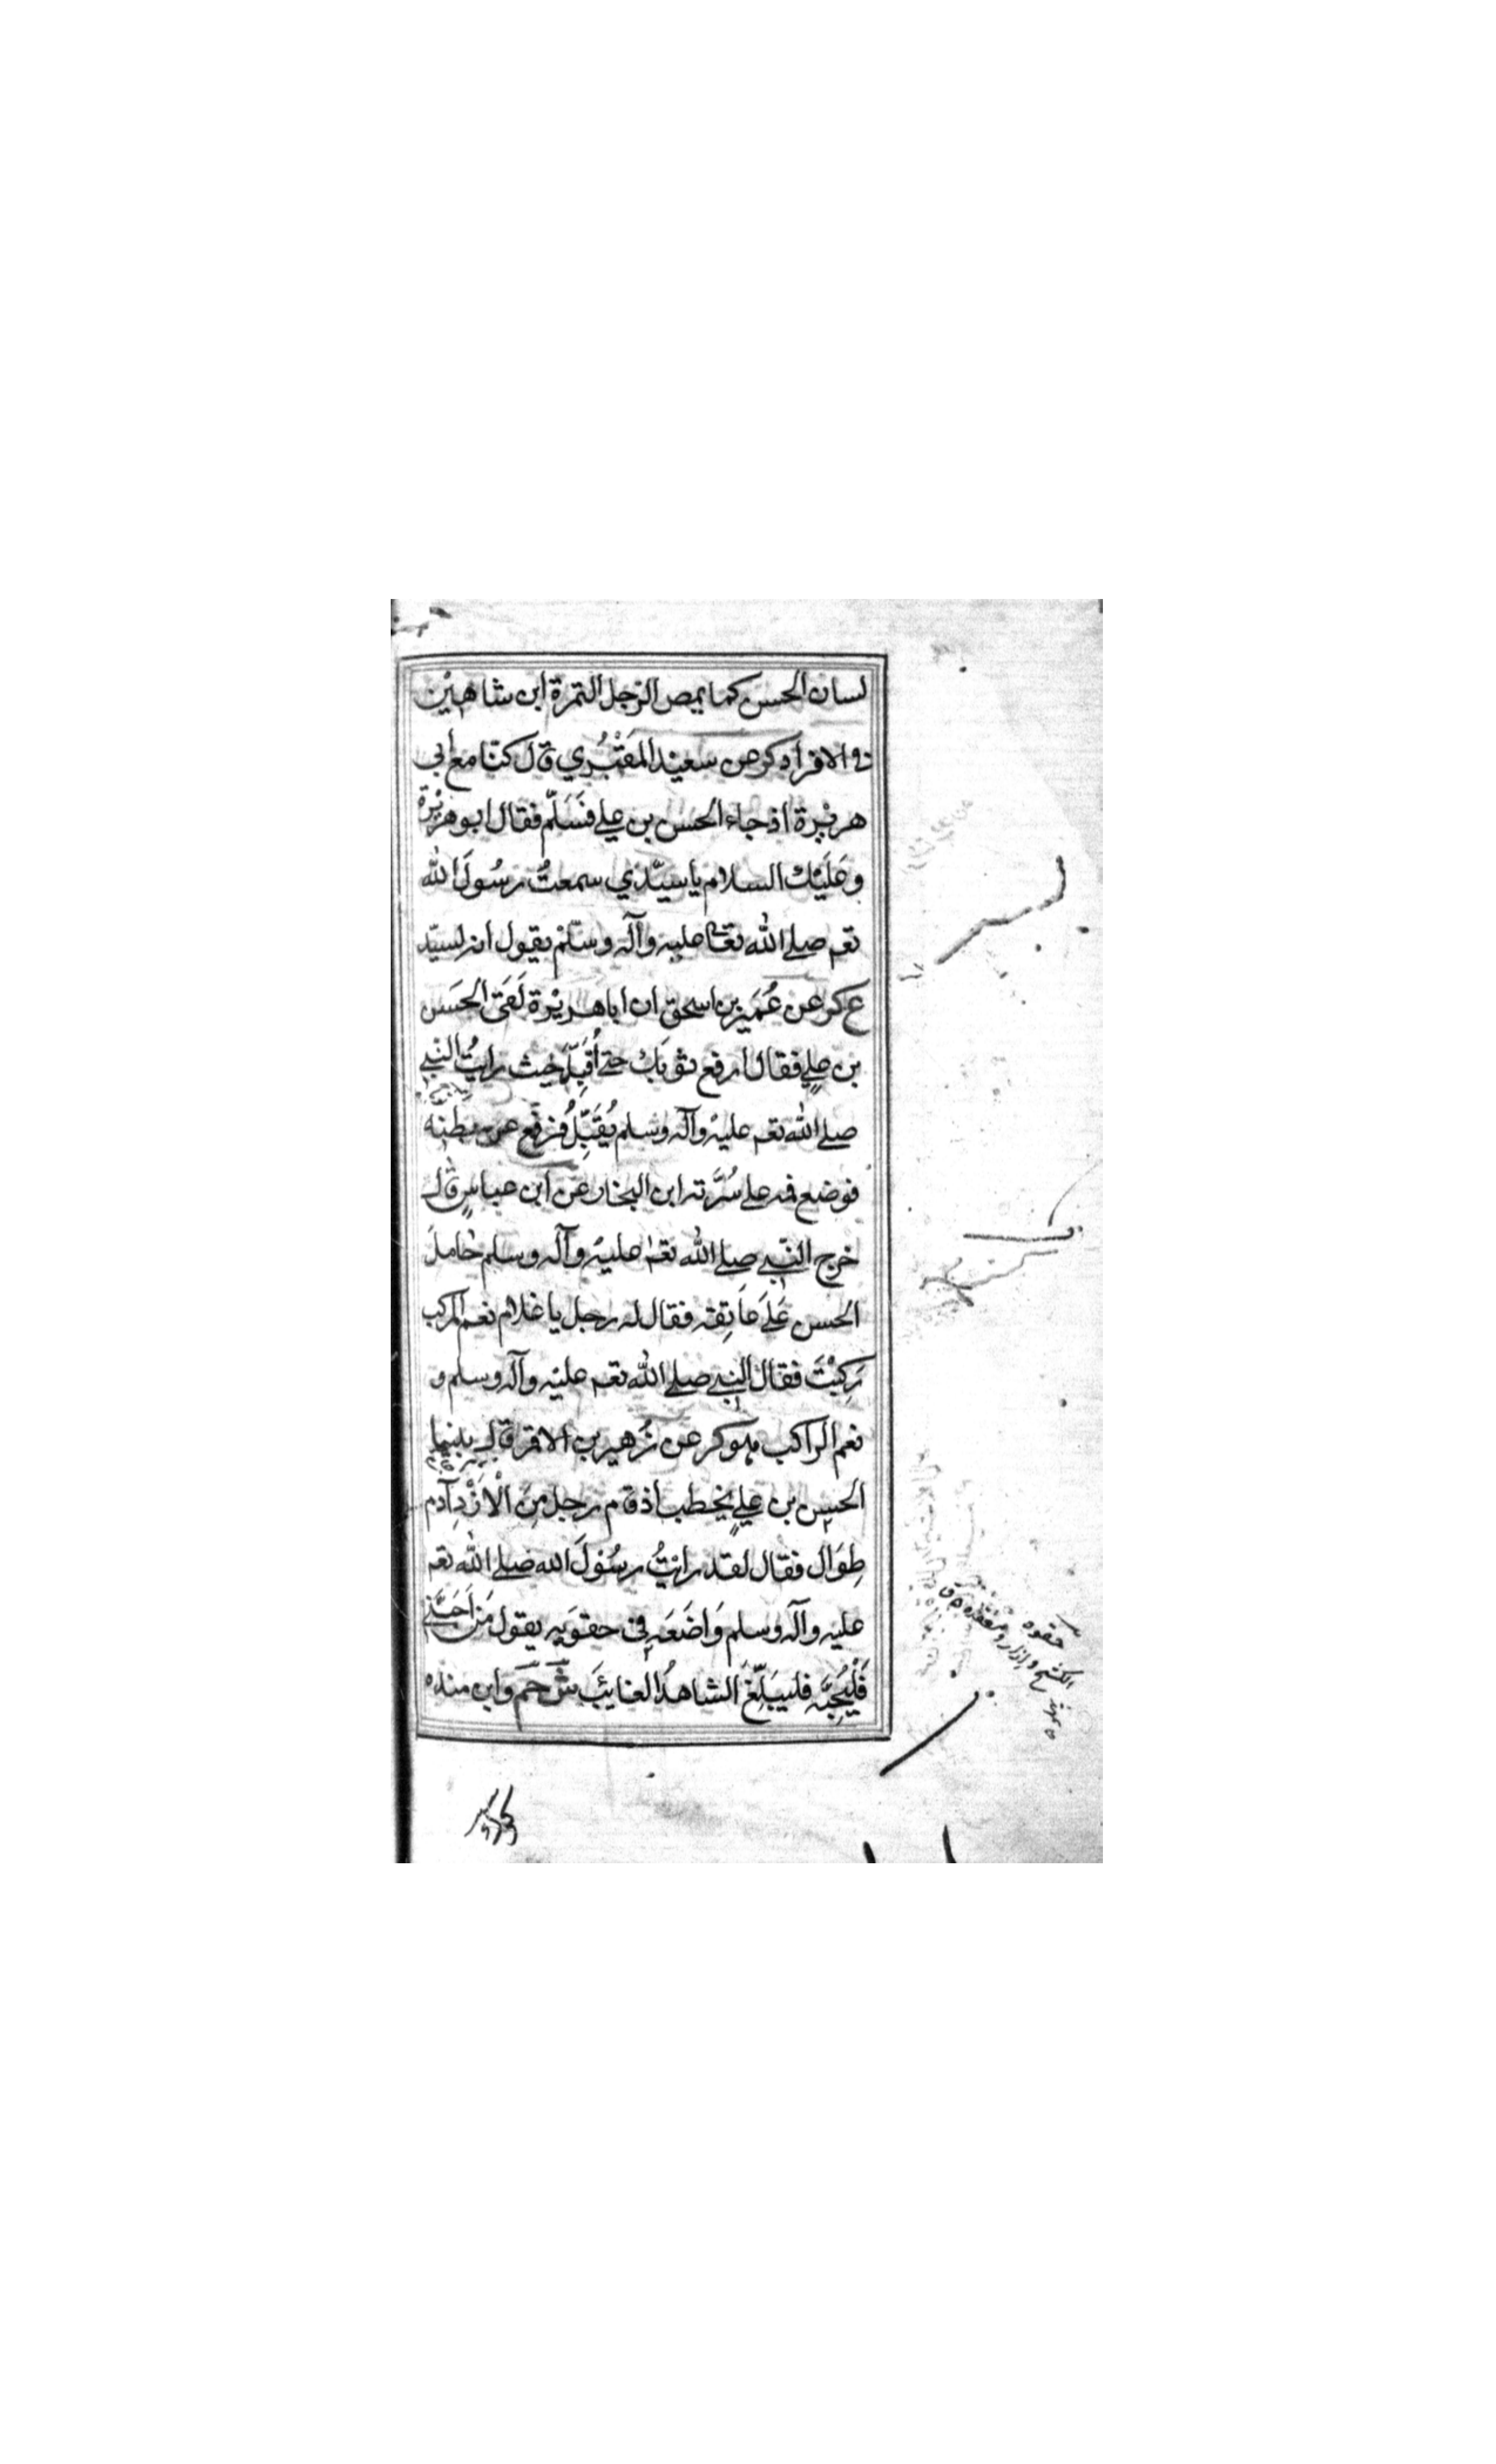 لسان الحسن كما يمص الرجل التمرة ابن شاهين
فى الافراد كر عن سعيد المَقْبُري قال كنا مع أبي
هريرة اذ جاء الحسن بن علي فَسَلَّم فقال ابو هريرة
وعَلَيْكَ السلام يا سيّدي سمعتُ رسُولَ الله
تعم صلى الله تعالى عليه وآله وسلّم يقول انه لسيّد
ع كر عن عُمَير بن اسحق ان ابا هريرة لَقَى الحسَن
بن علي فقال ارفع ثوبك حتى أُقَبِّلَ حيث رايتُ النبي
صلى الله تعم عليه وآله وسلم يُقَبِّلُ فرفع عن بطنه
فوضع فمه على سُرَّته ابن النجار عن ابن عباسٍ قال
خرج النبي صلى الله تعم عليه وآله وسلم حامل
الحسن عَلَى عَاتِقه فقال له رجل يا غلام نعم المركب
رَكِبْتَ فقال النبي صلى الله تعم عليه وآله وسلم و
نعم الراكب هو كر عن زُهير بن الاقمر قال بينما
الحسن بن عليٍ يخطب اذ قام رجل مِنَ الْاَزْدِ آدم
طِوَال فقال لقد رايتُ رسُولَ الله صلى الله تعم
عليه وآله وسلم وَاضَعَه في حقوَيه يقول مَن اَحَبَّنى
فَلْيُحِبَّه فليبَلِّغَ الشاهدُ الغائبَ ش حم وابن منده
حقوه
الكشح والازار ومعقده ق